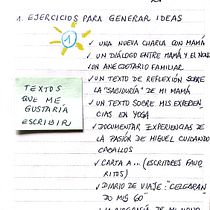 1. EJERCICIOS PARA GENERAR IDEAS
1
✓ UNA NUEVA CHARLA CON MAMÁ
✓ UN DIÁLOGO ENTRE MAMÁ Y EL
UN ANECDOTARIO FAMILIAR
✓ UN TEXTO DE REFLEXIÓN SOBRE
LA "SABIDURÍA" DE MI MAMÁ
✓ UN TEXTO SOBRE MIS EXPERIEN
CIAS EN YOGA
✓ DOCUMENTAR EXPERIENCIAS DE
LA PASIÓN DE MIGUEL CUIDANDO
CABALLOS
✓ CARTA A... (ESCRITORES FAVO
RITOS)
✓ DIARIO DE VIAJE: "CELEBRAN
DO MIS 60"
TEXTOS
QUE ME
GUSTARÍA
ESCRIBIR